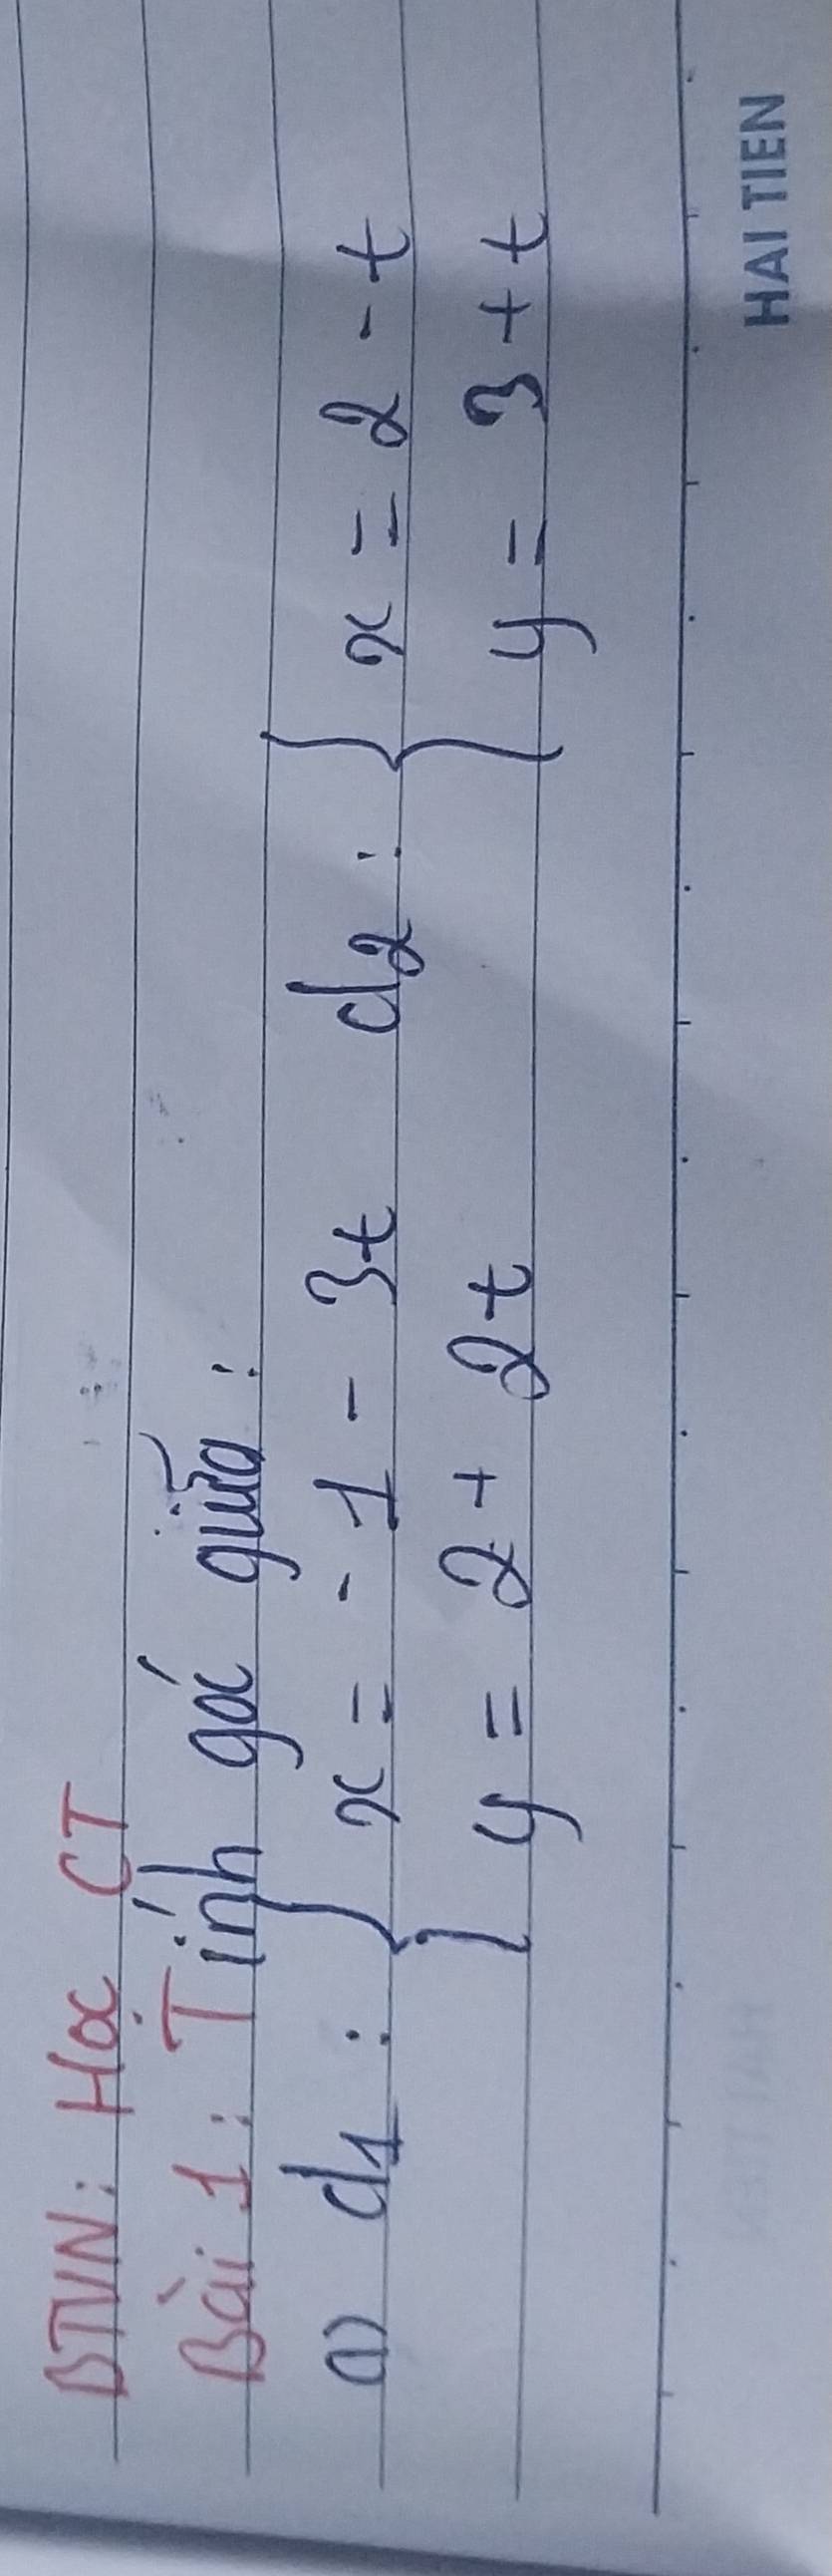 BTVN: Học CT
Bài 1: Tính gá giữa:
a) d1: { x = -1 - 3t d2: { x = 2 - t
y = 2 + 2t y = 3 + t
HAI TIEN